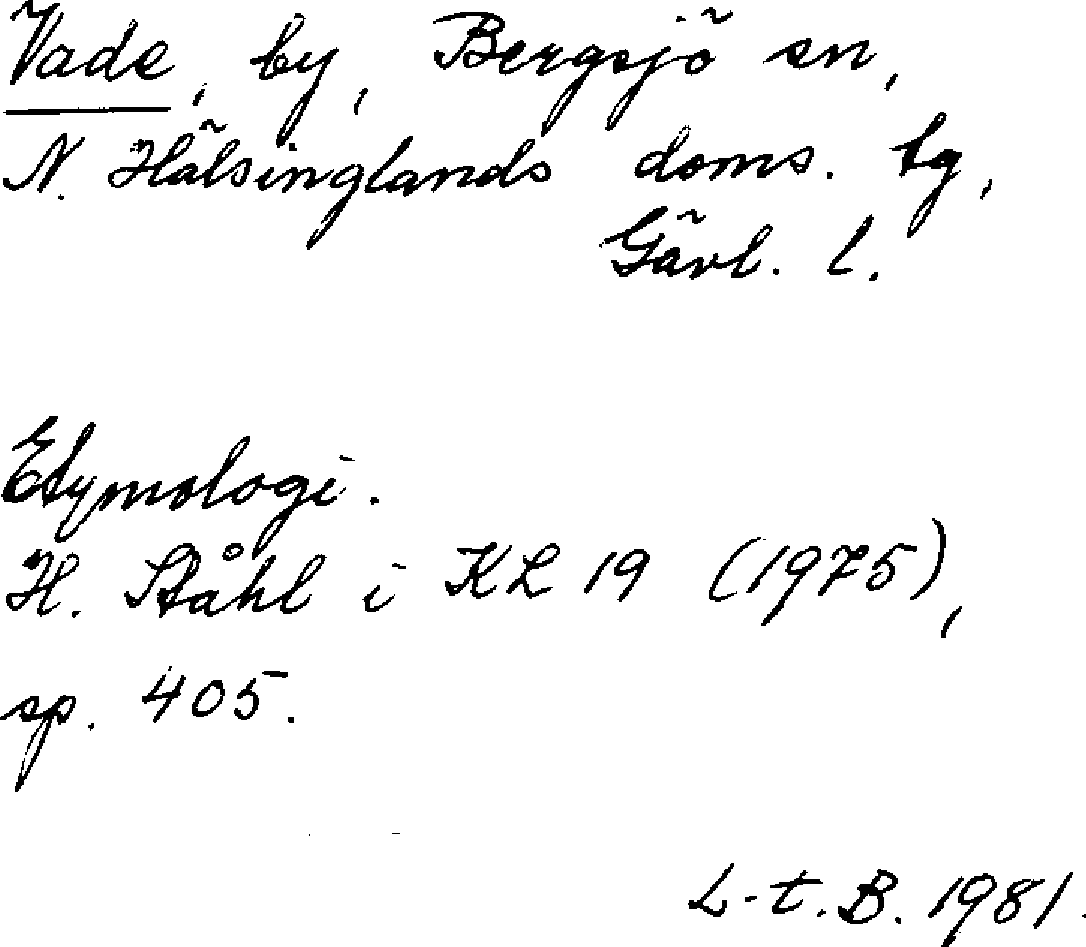 Vade, by, Bergsjö sn,
N. Hälsinglands doms. tg,
Gävl. l.
Etymologi.
H. Ståhl i KL 19 (1975),
sp. 405.
L-t. B. 1981.